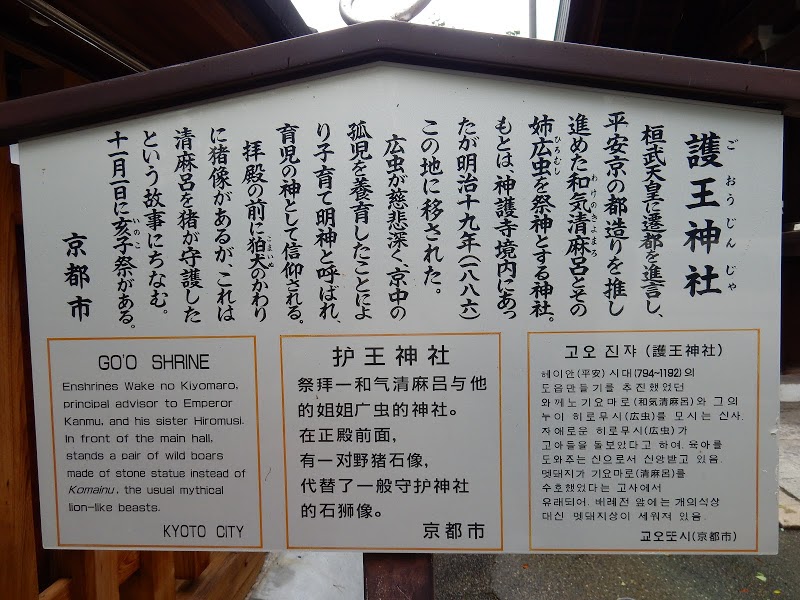 護王神社
ごおうじんじゃ
桓武天皇に遷都を進言し、
平安京の都造りを推し
進めた和気清麻呂とその
わけのきよまろ
姉広虫を祭神とする神社。
ひろむし
もとは、神護寺境内にあっ
たが明治十九年(一八八六)
この地に移された。
広虫が慈悲深く、京中の
孤児を養育したことによ
り子育て明神と呼ばれ、
育児の神として信仰される。
拝殿の前に狛犬のかわり
こまいぬ
に猪像があるが、これは
清麻呂を猪が守護した
という故事にちなむ。
十一月一日に亥子祭がある。
いのこ
京都市
GO'O SHRINE
Enshrines Wake no Kiyomaro,
principal advisor to Emperor
Kanmu, and his sister Hiromusi.
In front of the main hall,
stands a pair of wild boars
made of stone statue instead of
Komainu, the usual mythical
lion-like beasts.
KYOTO CITY
护王神社
祭拜一和气清麻吕与他
的姐姐广虫的神社。
在正殿前面，
有一对野猪石像，
代替了一般守护神社
的石狮像。
京都市
고오 진쟈 (護王神社)
헤이안(平安) 시대(794-1192)의
도읍만들기를 추진했었던
와께노 기요마로(和氣清麻呂)와 그의
누이 히로무시(広虫)를 모시는 신사.
자애로운 히로무시(広虫)가
고아들을 돌보았다고 하여, 육아를
도와주는 신으로서 신앙받고 있음.
멧돼지가 기요마로(清麻呂)를
수호했었다는 고사에서
유래되어, 배례전 앞에는 개의석상
대신 멧돼지상이 세워져 있음.
교오또시(京都市)